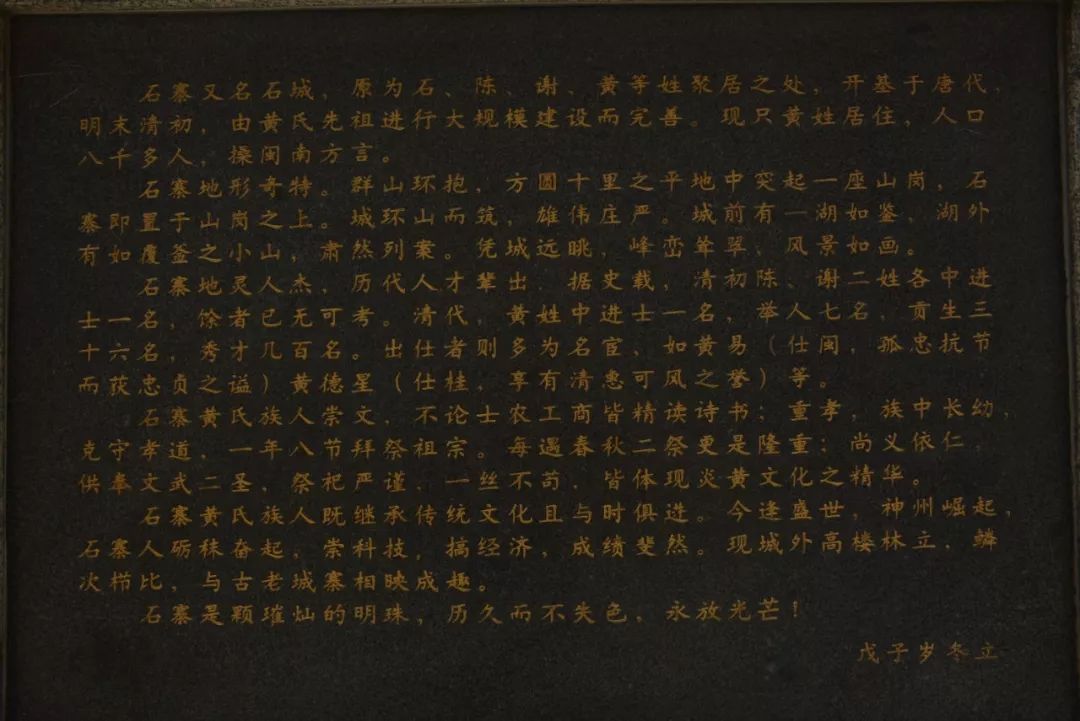 石寨又名石城，原为石、陈、谢、黄等姓聚居之处，开基于唐代，
明末清初，由黄氏先祖进行大规模建设而完善。现只黄姓居住，人口
八千多人，操闽南方言。
石寨地形奇特。群山环抱，方圆十里之平地中突起一座山岗，石
寨即置于山岗之上。城环山而筑，雄伟庄严。城前有一湖如鉴，湖外
有如覆釜之小山，肃然列案。凭城远眺，峰峦耸翠、风景如画。
石寨地灵人杰，历代人才辈出。据史载，清初陈、谢二姓各中进
士一名，馀者已无可考。清代，黄姓中进士一名，举人七名，贡生三
十六名，秀才几百名。出仕者则多为名宦，如黄易（仕闽，孤忠抗节
而获忠贞之谥）黄德星（仕桂，享有清惠可风之誉）等。
石寨黄氏族人崇文，不论士农工商皆精读诗书；重孝，族中长幼，
克守孝道，一年八节拜祭祖宗。每遇春秋二祭更是隆重；尚义依仁，
供奉文武二圣，祭祀严谨，一丝不苟，皆体现炎黄文化之精华。
石寨黄氏族人既继承传统文化且与时俱进。今逢盛世，神州崛起，
石寨人砺秣奋起，崇科技，搞经济，成绩斐然。现城外高楼林立，鳞
次栉比，与古老城寨相映成趣。
石寨是颗璀灿的明珠，历久而不失色，永放光芒！
戊子岁冬立